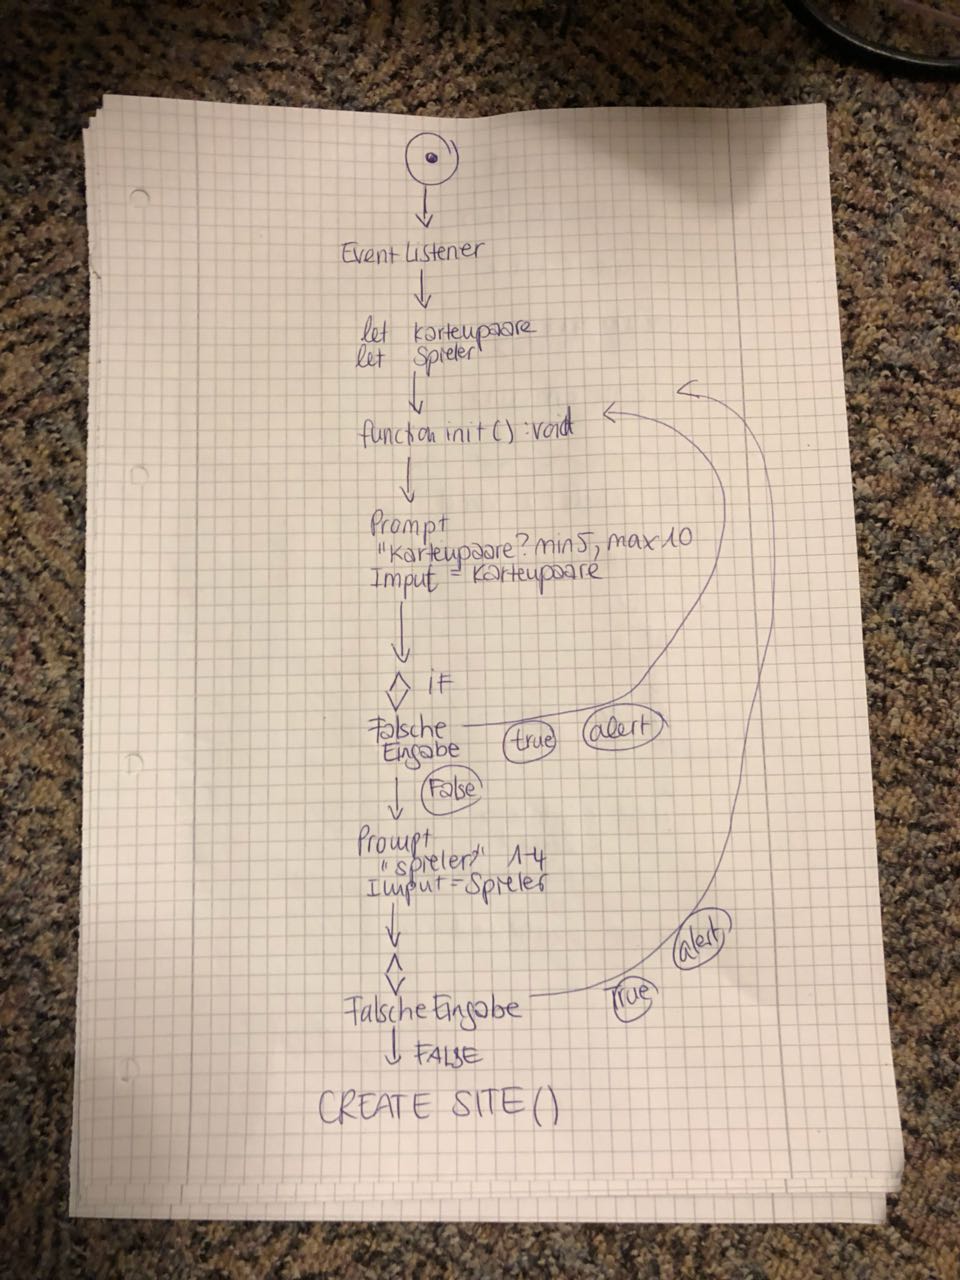 Event Listener
let Kartenpaare
let Spieler
function init () : void
Prompt
"Kartenpaare? min 5, max 10
Imput = Kartenpaare
iF
Falsche
Eingabe
true
alert
False
Prompt
"Spieler" 1-4
Imput = Spieler
alert
Falsche Eingabe
True
FALSE
CREATE SITE ()